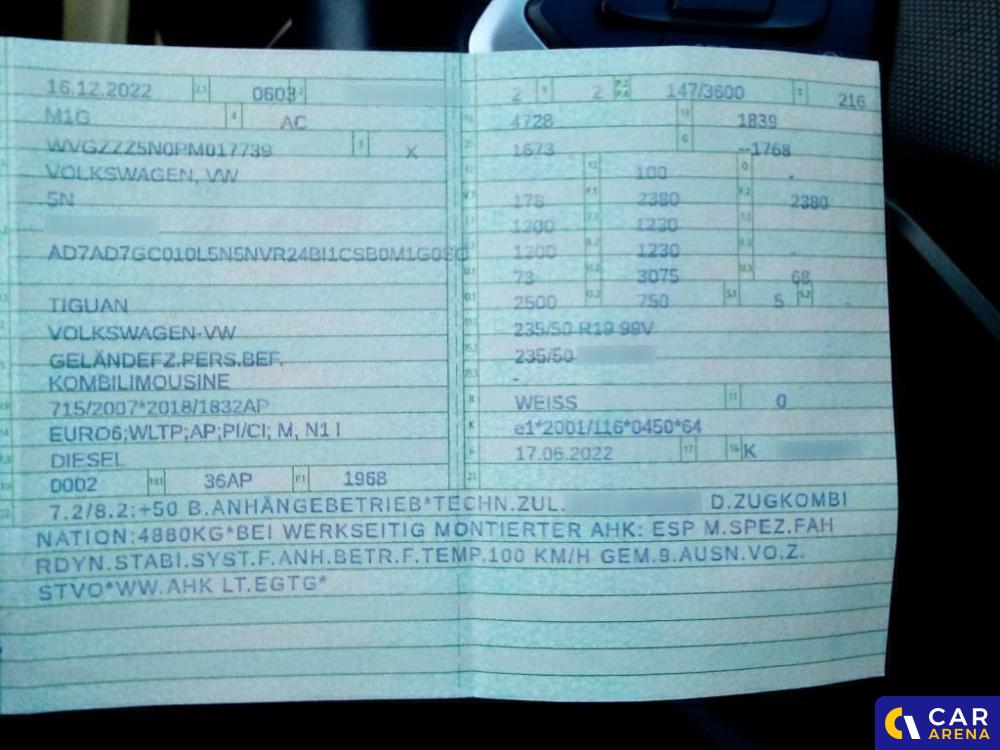 16.12.2022 2.1 0603
M1G 4 AC
WVGZZZ5N0PM017739 3 X
VOLKSWAGEN, VW
5N
AD7AD7GC010L5N5NVR24BI1CSB0M1G0
TIGUAN
VOLKSWAGEN-VW
GELÄNDEFZ.PERS.BEF.
KOMBILIMOUSINE
715/2007*2018/1832AP
EURO6;WLTP;AP;PI/CI; M, N1 I
DIESEL
0002 14.1 36AP P.1 1968
2 9 2 P.2 P.4 147/3600 T 216
4728 19 1839
1673 G --1768
12 100 Q -
178 F.1 2380 F.2 2380
1200 7.2 1230
1200 8.2 1230 8.3 -
73 U.2 3075 U.3 68
2500 O.2 750 S.1 5 S.2 -
235/50 R19 99V
235/50
-
R WEISS 11 0
K e1*2001/116*0450*64
6 17.06.2022 17 16 K
21
7.2/8.2:+50 B.ANHÄNGEBETRIEB*TECHN.ZUL. D.ZUGKOMBI
NATION:4880KG*BEI WERKSEITIG MONTIERTER AHK: ESP M.SPEZ.FAH
RDYN.STABI.SYST.F.ANH.BETR.F.TEMP.100 KM/H GEM.9.AUSN.VO.Z.
STVO*WW.AHK LT.EGTG*
CAR
ARENA